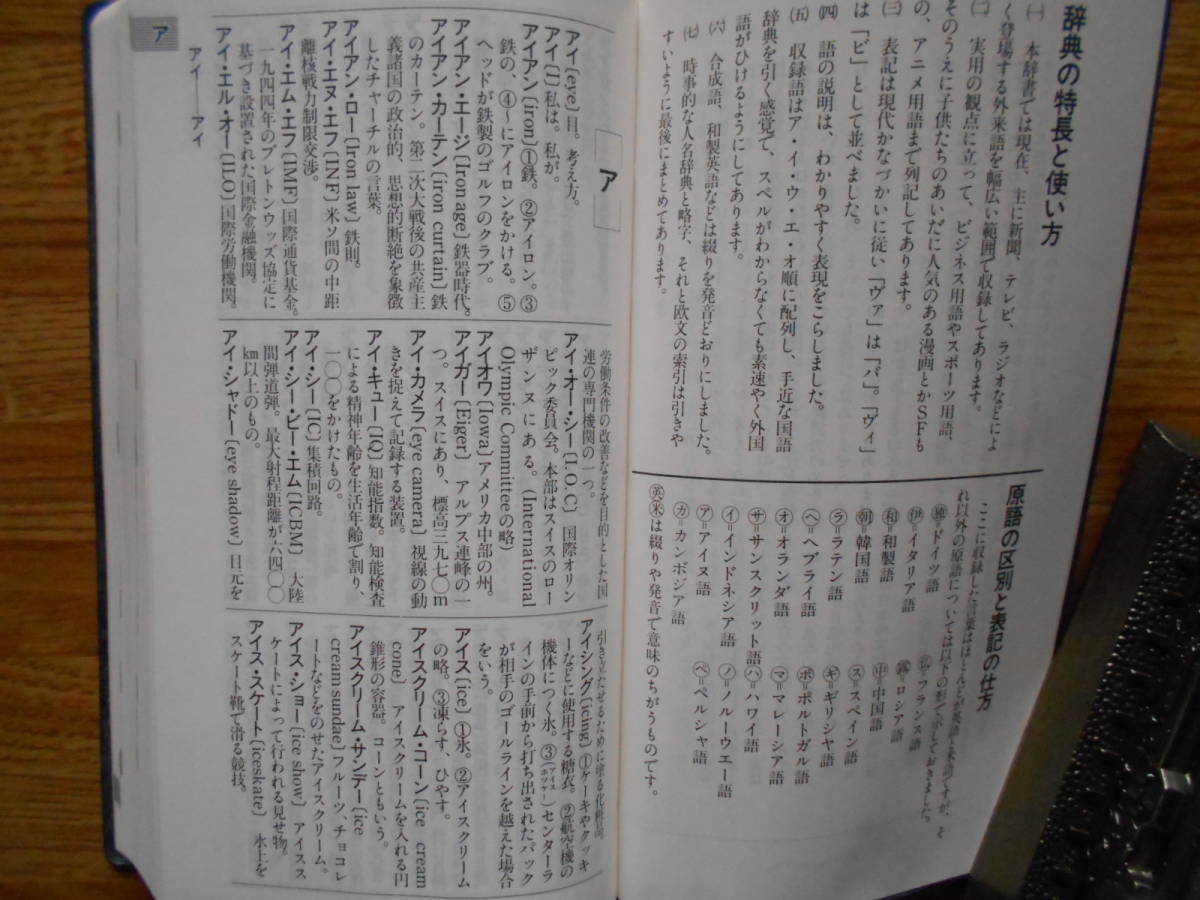 辞典の特長と使い方
㈠ 本辞書では現在、主に新聞、テレビ、ラジオなどによ
く登場する外来語を幅広い範囲で収録してあります。
㈡ 実用の観点に立って、ビジネス用語やスポーツ用語、
そのうえに子供たちのあいだに人気のある漫画とかSFも
の、アニメ用語まで列記してあります。
㈢ 表記は現代かなづかいに従い「ヴァ」は「バ」。「ヴィ」
は「ビ」として並べました。
㈣ 語の説明は、わかりやすく表現をこらしました。
㈤ 収録語はア・イ・ウ・エ・オ順に配列し、手近な国語
辞典を引く感覚で、スペルがわからなくても素速やく外国
語がひけるようにしてあります。
㈥ 合成語、和製英語などは綴りを発音どおりにしました。
㈦ 時事的な人名辞典と略字、それと欧文の索引は引きや
すいように最後にまとめてあります。
原語の区別と表記の仕方
ここに収録した言葉はほとんどが英語と米語ですが、そ
れ以外の原語については以下の形で示しておきました。
独=ドイツ語 仏=フランス語
伊=イタリア語 露=ロシア語
和=和製語 中=中国語
朝=韓国語 ス=スペイン語
ラ=ラテン語 ギ=ギリシヤ語
ヘ=ヘブライ語 ポ=ポルトガル語
オ=オランダ語 マ=マレーシア語
サ=サンスクリット語 ハ=ハワイ語
イ=インドネシア語 ノ=ノルーウエー語
ア=アイヌ語 ペ=ペルシャ語
カ=カンボジア語
英米は綴りや発音で意味のちがうものです。
ア
アイ〔eye〕目。考え方。
アイ〔I〕私は。私が。
アイアン〔iron〕①鉄。②アイロン。③
鉄の、④〜にアイロンをかける。⑤
ヘッドが鉄製のゴルフのクラブ。
アイアン・エージ〔Iron age〕鉄器時代。
アイアン・カーテン〔iron curtain〕鉄
のカーテン。第二次大戦後の共産主
義諸国の政治的、思想的断絶を象徴
したチャーチルの言葉。
アイアン・ロー〔Iron law〕鉄則。
アイ・エヌ・エフ〔INF〕米ソ間の中距
離核戦力制限交渉。
アイ・エム・エフ〔IMF〕国際通貨基金。
一九四四年のブレトンウッズ協定に
基づき設置された国際金融機関。
アイ・エル・オー〔ILO〕国際労働機関。
労働条件の改善などを目的とした国
連の専門機関の一つ。
アイ・オー・シー〔I.O.C〕国際オリン
ピック委員会。本部はスイスのロー
ザンヌにある。(International
Olympic Committeeの略)
アイオワ〔Iowa〕アメリカ中部の州。
アイガー〔Eiger〕アルプス連峰の一
つ。スイスにあり、標高三九七〇m
アイ・カメラ〔eye camera〕視線の動
きを捉えて記録する装置。
アイ・キュー〔IQ〕知能指数。知能検査
による精神年齢を生活年齢で割り、
一〇〇をかけたもの。
アイ・シー〔IC〕集積回路。
アイ・シー・ビー・エム〔ICBM〕大陸
間弾道弾。最大射程距離が六四〇〇
km以上のもの。
アイ・シャドー〔eye shadow〕目元を
引き立たせるために塗る化粧品。
アイシング〔icing〕①ケーキやクッキ
ーなどに使用する糖衣。②航空機の
機体につく氷。③(アイスホッケー)センターラ
インの手前から打ち出されたパック
が相手のゴールラインを越えた場合
をいう。
アイス〔ice〕①氷。②アイスクリーム
の略。③凍らす、ひやす。
アイスクリーム・コーン〔ice cream
cone〕アイスクリームを入れる円
錐形の容器。コーンともいう。
アイスクリーム・サンデー〔ice
cream sundae〕フルーツ、チョコレ
ートなどをのせたアイスクリーム。
アイス・ショー〔ice show〕アイスス
ケートによって行われる見せ物。
アイス・スケート〔iceskate〕氷上を
スケート靴で滑る競技。
アイ―アイ
ア